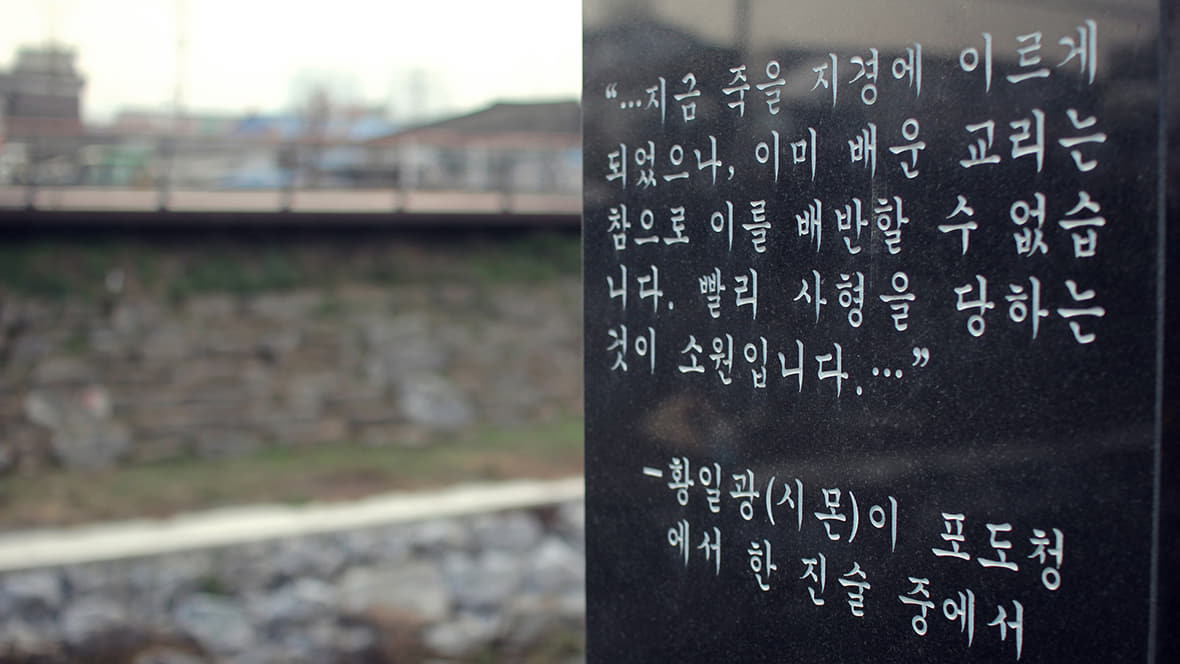 “...지금 죽을 지경에 이르게
되었으나, 이미 배운 교리는
참으로 이를 배반할 수 없습
니다. 빨리 사형을 당하는
것이 소원입니다.…”
-황일광(시몬)이 포도청
에서 한 진술 중에서